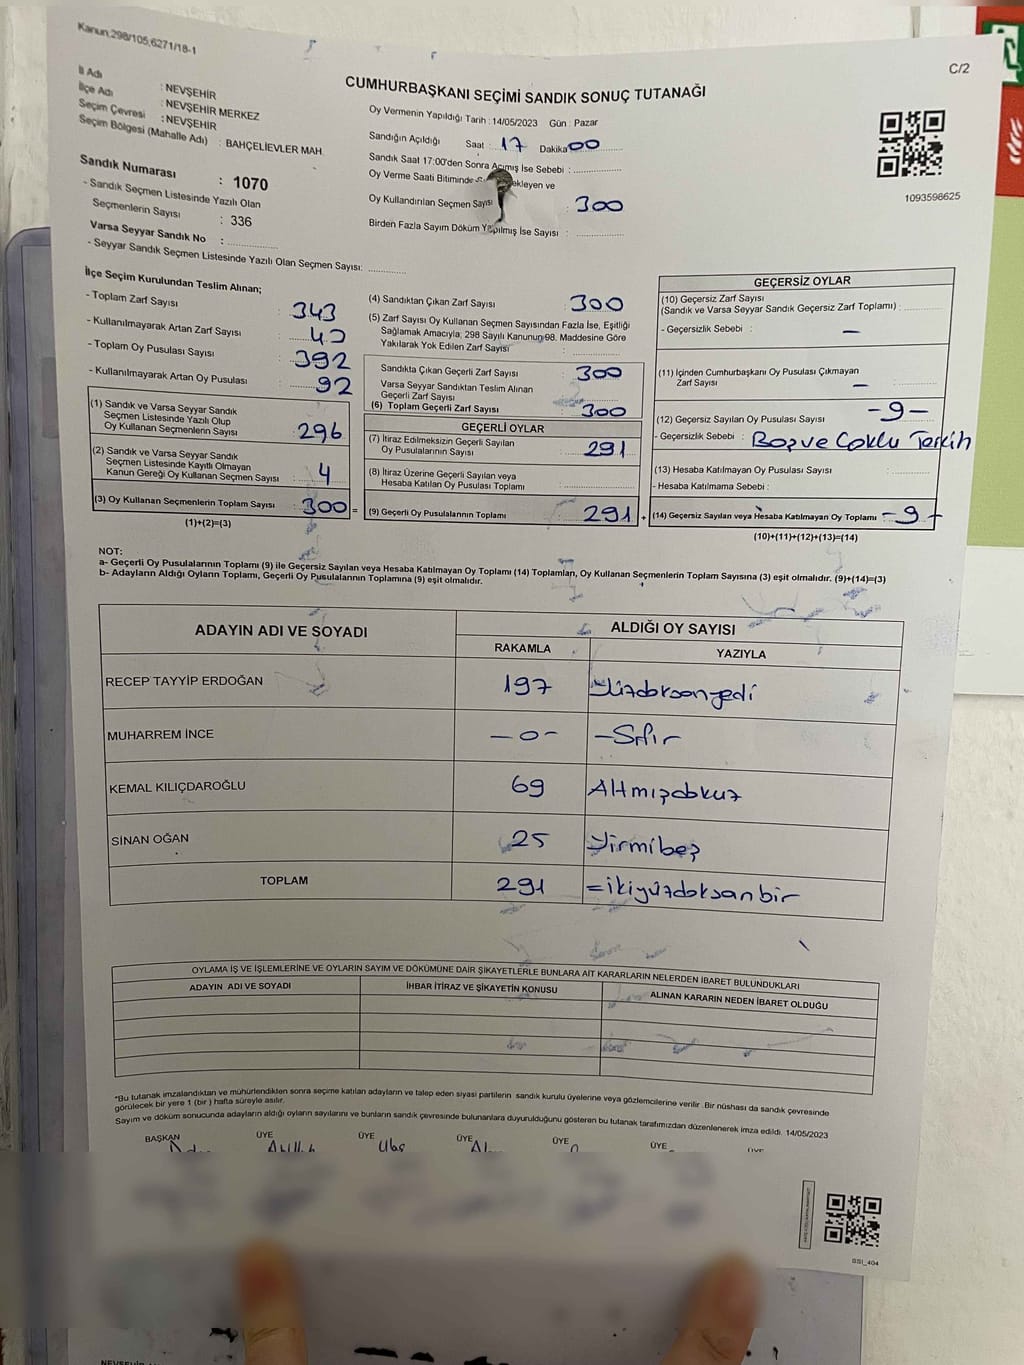 Kanun;298/105;6271/18-1
C/2
CUMHURBAŞKANI SEÇİMİ SANDIK SONUÇ TUTANAĞI
İl Adı : NEVŞEHİR
İlçe Adı : NEVŞEHİR MERKEZ
Seçim Çevresi : NEVŞEHİR
Seçim Bölgesi (Mahalle Adı) : BAHÇELİEVLER MAH.
Sandık Numarası : 1070
- Sandık Seçmen Listesinde Yazılı Olan
Seçmenlerin Sayısı : 336
Varsa Seyyar Sandık No :
- Seyyar Sandık Seçmen Listesinde Yazılı Olan Seçmen Sayısı:
Oy Vermenin Yapıldığı Tarih : 14/05/2023 Gün : Pazar
Sandığın Açıldığı Saat : 17 Dakika 00
Sandık Saat 17:00'den Sonra Açımış İse Sebebi :
Oy Verme Saati Bitiminde ekleyen ve
Oy Kullandırılan Seçmen Sayısı 300
Birden Fazla Sayım Döküm Yapılmış İse Sayısı :
1093598625
İlçe Seçim Kurulundan Teslim Alınan;
- Toplam Zarf Sayısı : 343
- Kullanılmayarak Artan Zarf Sayısı :
- Toplam Oy Pusulası Sayısı : 392
- Kullanılmayarak Artan Oy Pusulası : 92
(1) Sandık ve Varsa Seyyar Sandık
Seçmen Listesinde Yazılı Olup
Oy Kullanan Seçmenlerin Sayısı : 296
(2) Sandık ve Varsa Seyyar Sandık
Seçmen Listesinde Kayıtlı Olmayan
Kanun Gereği Oy Kullanan Seçmen Sayısı : 4
(3) Oy Kullanan Seçmenlerin Toplam Sayısı : 300 =
(1)+(2)=(3)
(4) Sandıktan Çıkan Zarf Sayısı : 300
(5) Zarf Sayısı Oy Kullanan Seçmen Sayısından Fazla İse, Eşitliği
Sağlamak Amacıyla; 298 Sayılı Kanunun 98. Maddesine Göre
Yakılarak Yok Edilen Zarf Sayısı :
Sandıkta Çıkan Geçerli Zarf Sayısı : 300
Varsa Seyyar Sandıktan Teslim Alınan
Geçerli Zarf Sayısı :
(6) Toplam Geçerli Zarf Sayısı : 300
GEÇERLİ OYLAR
(7) İtiraz Edilmeksizin Geçerli Sayılan
Oy Pusulalarının Sayısı : 291
(8) İtiraz Üzerine Geçerli Sayılan veya
Hesaba Katılan Oy Pusulası Toplamı :
(9) Geçerli Oy Pusulalarının Toplamı : 291 +
GEÇERSİZ OYLAR
(10) Geçersiz Zarf Sayısı
(Sandık ve Varsa Seyyar Sandık Geçersiz Zarf Toplamı) :
- Geçersizlik Sebebi : —
(11) İçinden Cumhurbaşkanı Oy Pusulası Çıkmayan
Zarf Sayısı : —
(12) Geçersiz Sayılan Oy Pusulası Sayısı : -9-
- Geçersizlik Sebebi : Boş ve Çoklu Tercih
(13) Hesaba Katılmayan Oy Pusulası Sayısı :
- Hesaba Katılmama Sebebi :
(14) Geçersiz Sayılan veya Hesaba Katılmayan Oy Toplamı : -9-
(10)+(11)+(12)+(13)=(14)
NOT:
a- Geçerli Oy Pusulalarının Toplamı (9) ile Geçersiz Sayılan veya Hesaba Katılmayan Oy Toplamı (14) Toplamları, Oy Kullanan Seçmenlerin Toplam Sayısına (3) eşit olmalıdır. (9)+(14)=(3)
b- Adayların Aldığı Oyların Toplamı, Geçerli Oy Pusulalarının Toplamına (9) eşit olmalıdır.
ADAYIN ADI VE SOYADI ALDIĞI OY SAYISI
RAKAMLA YAZIYLA
RECEP TAYYİP ERDOĞAN 197 Yüzdoksanyedi
MUHARREM İNCE -0- -Sıfır
KEMAL KILIÇDAROĞLU 69 Altmışdokuz
SİNAN OĞAN 25 Yirmibeş
TOPLAM 291 =ikiyüzdoksanbir
OYLAMA İŞ VE İŞLEMLERİNE VE OYLARIN SAYIM VE DÖKÜMÜNE DAİR ŞİKAYETLERLE BUNLARA AİT KARARLARIN NELERDEN İBARET BULUNDUKLARI
ADAYIN ADI VE SOYADI İHBAR İTİRAZ VE ŞİKAYETİN KONUSU ALINAN KARARIN NEDEN İBARET OLDUĞU
*Bu tutanak imzalandıktan ve mühürlendikten sonra seçime katılan adayların ve talep eden siyasi partilerin sandık kurulu üyelerine veya gözlemcilerine verilir. Bir nüshası da sandık çevresinde
görülecek bir yere 1 (bir) hafta süreyle asılır.
Sayım ve döküm sonucunda adayların aldığı oyların sayılarını ve bunların sandık çevresinde bulunanlara duyurulduğunu gösteren bu tutanak tarafımızdan düzenlenerek imza edildi. 14/05/2023
BAŞKAN ÜYE ÜYE ÜYE ÜYE ÜYE ÜYE
SSI_404